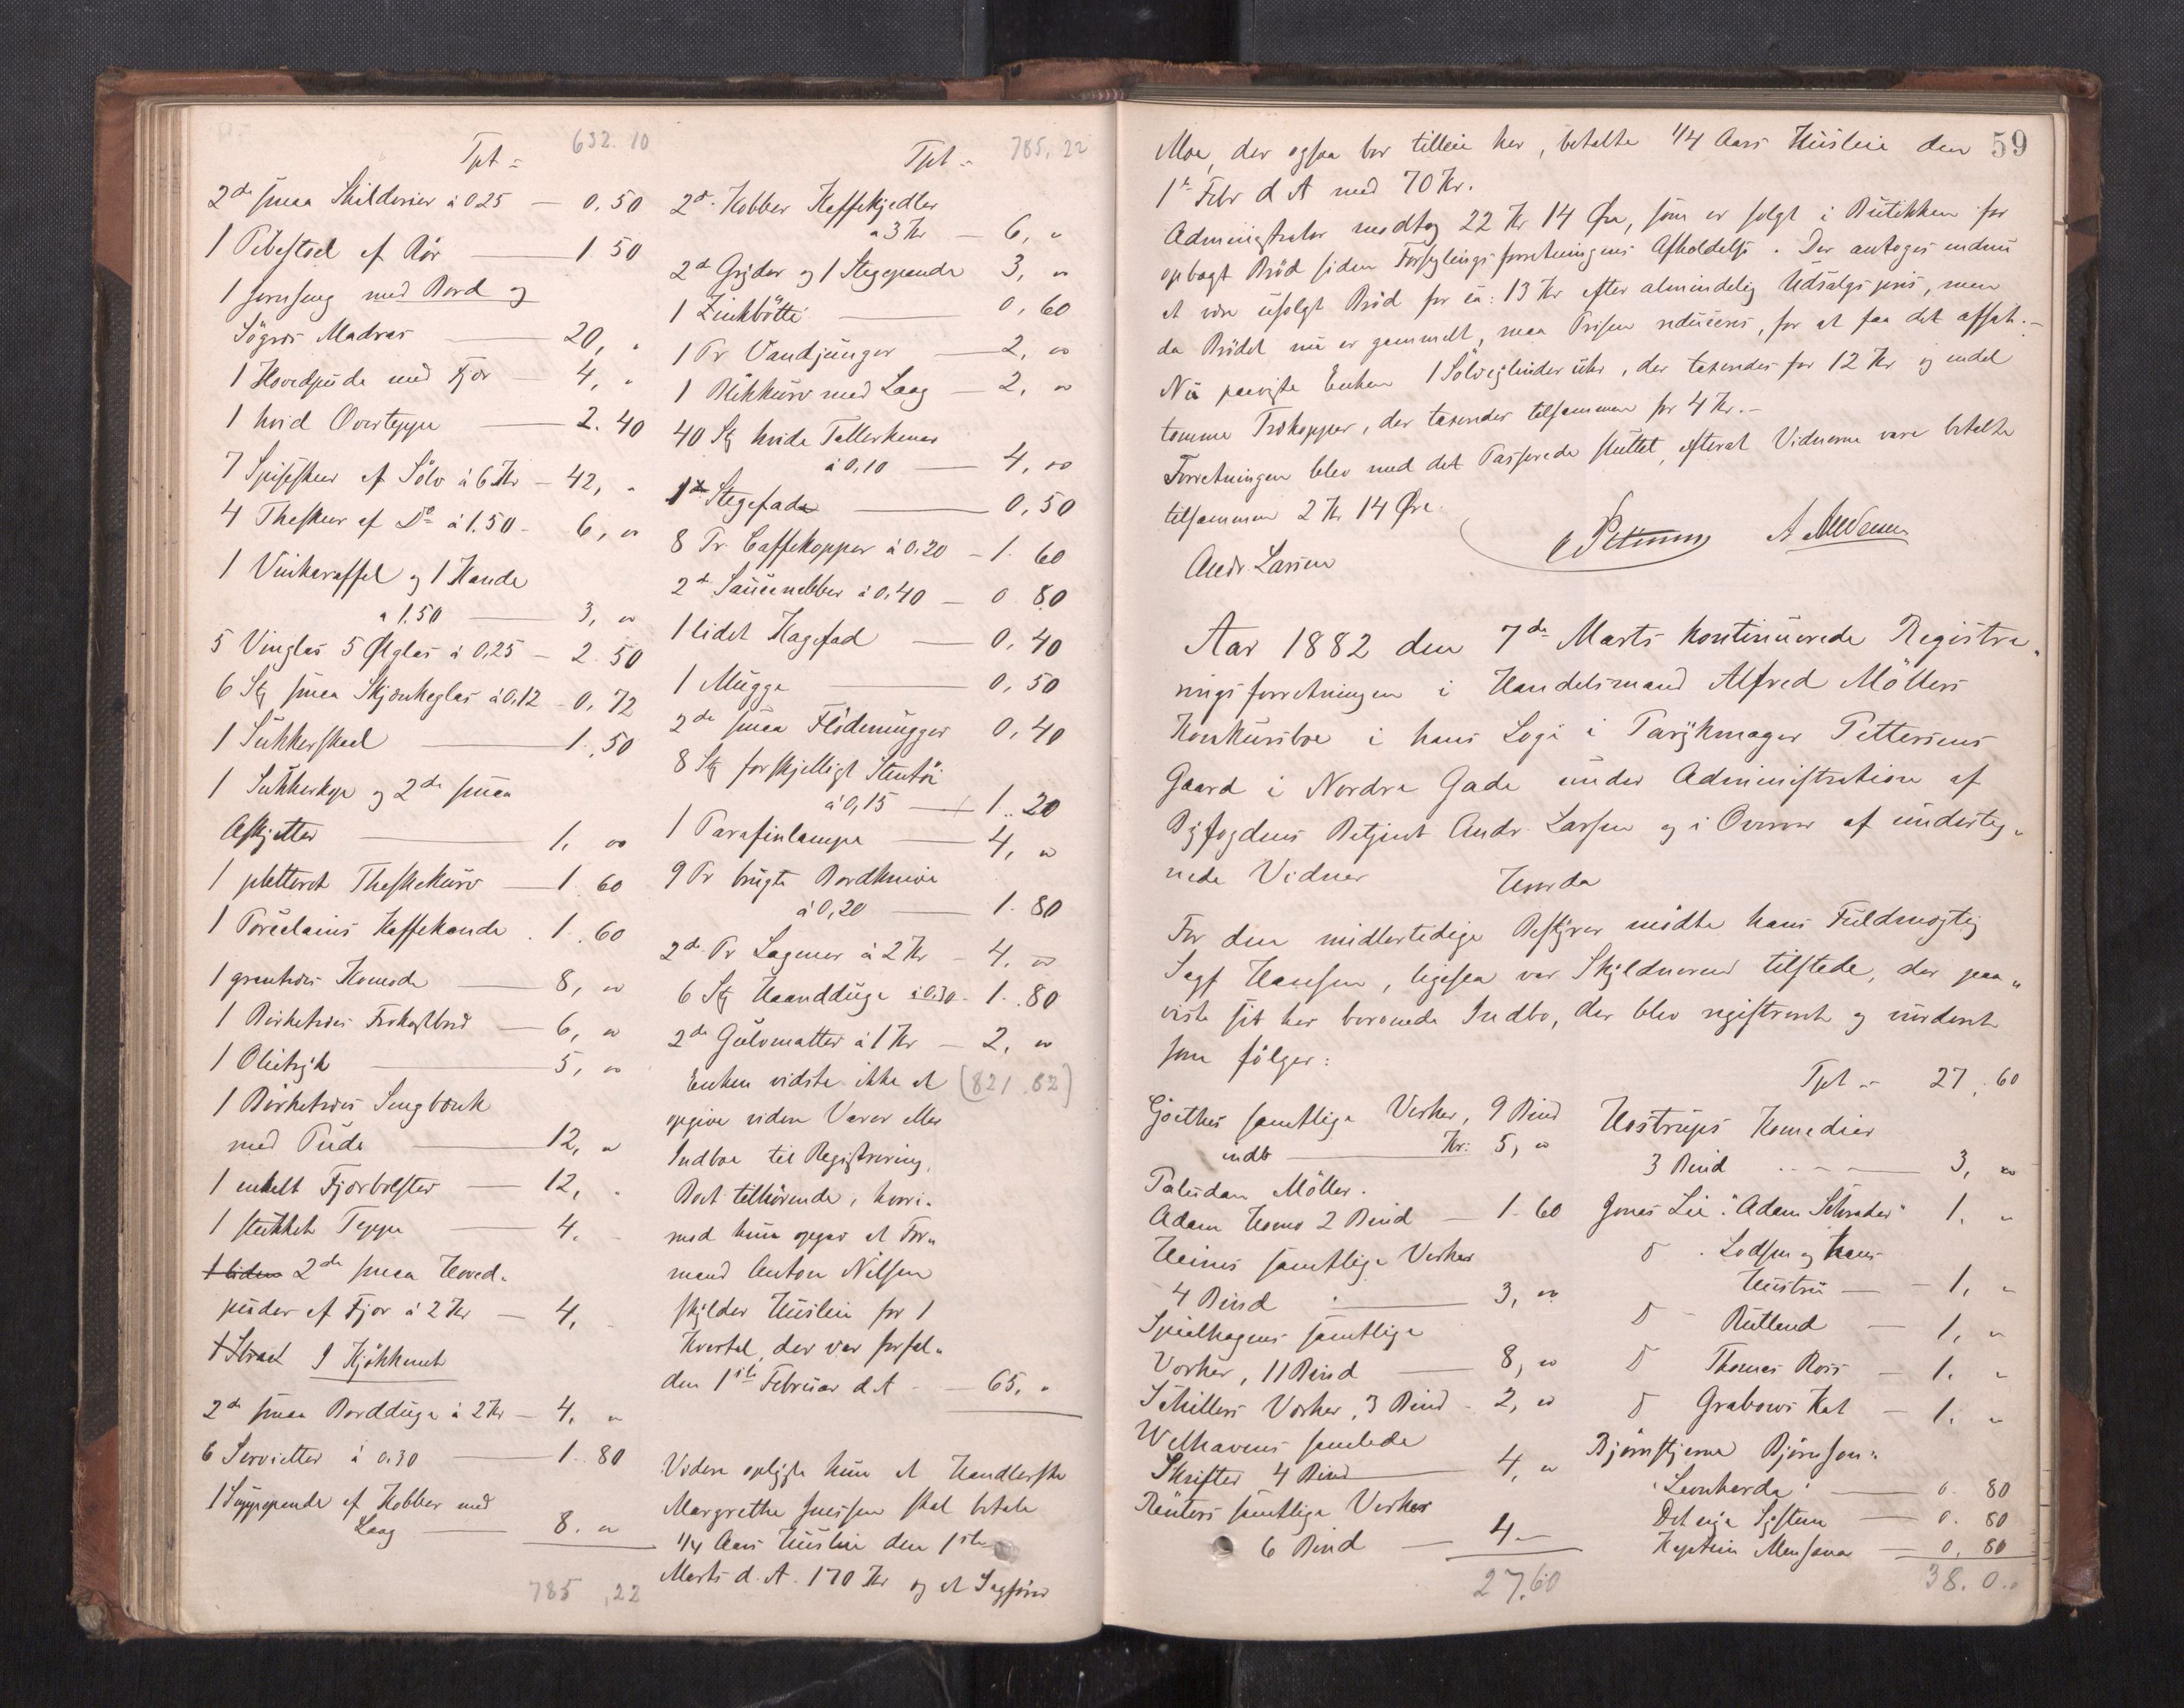 Tpt = 632.10
2de smaa Skilderier à 0.25 — 0.50
1 Pibestoel af Rør — 1 50
1 Jernseng med Bord og
Søgræs Madras — 20, "
1 Hovedpude med Fjær — 4, "
1 hvid Overteppe — 2.40
7 Spiseskeer af Sölv à 6 Kr — 42, "
4 Theskeer af Do à 1.50 — 6, "
1 Vinkaraffel og 1 Kande
à 1.50 — 3, "
5 Vinglas 5 Ølglas à 0,25 — 2.50
6 Stk smaa Skjænkeglas à 0,12 — 0.72
1 Sukkerskaal — 1.50
1 Sukkerkop og 2de smaa
Asjetter — 1, "
1 pletteret Theskekurv — 1.60
1 Porcelains Kaffekande . 1.60
1 grantræes Komode — 8, "
1 Birketræes Frokostbord — 6, "
1 Olietryk — 5, "
1 Birketræes Sengbænk
med Pude — 12, "
1 enkelt Fjærbolster — 12, "
1 stukket Teppe — 4.
1 liden 2de smaa Hoved-
puder af Fjær à 2 Kr — 4,
I Kjökkenet
2de smaa Bordduge à 2 Kr — 4, "
6 Servietter à 0.30 — 1.80
1 Suppepande af Kobber med
Laag — 8. "
785,22
Tpt = 785,22
2de Kobber Kaffekjedler
à 3 Kr — 6, "
2de Gryder og 1 Stegepande 3, "
1 Zinkbøtte — 0,60
1 Pr Vandjunger — 2, "
1 Blikkurv med Laag — 2, "
40 Stk hvide Tallerkener
à 0,10 — 4, "
1 Stegefad — 0,50
8 Pr. Caffekopper à 0,20 — 1.60
2de Saucenebber à 0,40 — 0 80
1 lidet Kagefad — 0,40
1 Mugge 0,50
2de smaa Flödemugger 0,40
8 Stk forskjelligt Stentöi
à 0,15 — 1.20
1 Parafinlampe — 4, "
9 Pr brugte Bordknive
à 0,20 — 1.80
2de Pr Lagener à 2 Kr — 4. "
6 Stk Haandduge à 0.30 — 1.80
2de Gulvmatter à 1 Kr — 2, "
Enken vidste ikke at (821.82)
opgive videre Varer eller
Indboe til Registrering,
Boet tilhörende, hvori-
mod hun opgav at For-
mand Anton Nilsen
skylder Husleie for 1
Kvartal, der var forfal-
den 1ste Februar d.A — 65, "
Videre oplyste hun at Handlerske
Margrethe Jnessen skal betale
1/4 Aars Husleie den 1ste
Marts d.A. 170 Kr og at Sagfører
59
Moe, der ogsaa bor tilleie her, betalte 1/4 Aars Husleie den
1te Febr d A med 70 Kr.
Administrator modtog 22 Kr 14 Øre, som er solgt i Butikken for
opbagt Bröd siden Forseglingsforretningens Afholdelse. Der antoges endnu
at være usolgt Bröd for ca: 13 Kr efter almindelig Udsalgspris, men
da Brödet nu er gammelt, maa Prisen reduceres, for at faa det afsat.—
Nu paaviste Enken 1 Sölvcylinder uhr, der taxeredes for 12 Kr og endel
tomme Trækopper, der taxeredes tilsammen for 4 Kr.—
Forretningen blev med det Passerede sluttet, efterat Vidnerne vare betalte
tilsammen 2 Kr 14 Øre.
Andr. Larsen
Aar 1882 den 7de Marts kontinuerede Registre-
ringsforretningen i Handelsmand Alfred Möllers
Konkursboe i hans Logi i Parykmager Pettersens
Gaard i Nordre Gade under Administration af
Byfogdens Betjent Andr. Larsen og i Overvær af underteg-
nede Vidner
Hvorda
For den midlertidige Bestyrer mödte hans Fuldmægtig
Sagf Hansen, ligesaa var Skyldneren tilstede, der paa-
viste sit her beroende Indbo, der blev registreret og vurderet
som fölger:
Goethes samtlige Verker, 9 Bind
indb — Kr: 5, "
Paludan Möller.
Adam Homo 2 Bind — 1.60
Heines samtlige Verker
4 Bind — 3, "
Spielhagens samtlige
Værker, 11 Bind — 8, "
Schillers Værker, 3 Bind — 2, "
Welhavens samlede
Skrifter 4 Bind — 4, "
Reuters samtlige Verker
6 Bind — 4 —
27.60
Tpt — 27.60
Hostrups Komedier
3 Bind — 3, "
Jonas Lie: "Adam Schrader" 1. "
D . Lodsen og hans
Hustru — 1, "
D Rutland — 1, "
D Thomas Ross — 1. "
D Grabows Kat — 1. "
Björnstjerne Björnson:
"Leonharda" — 0. 80
Det nye System — 0. 80
Kaptein Mansana — 0. 80
38.0..